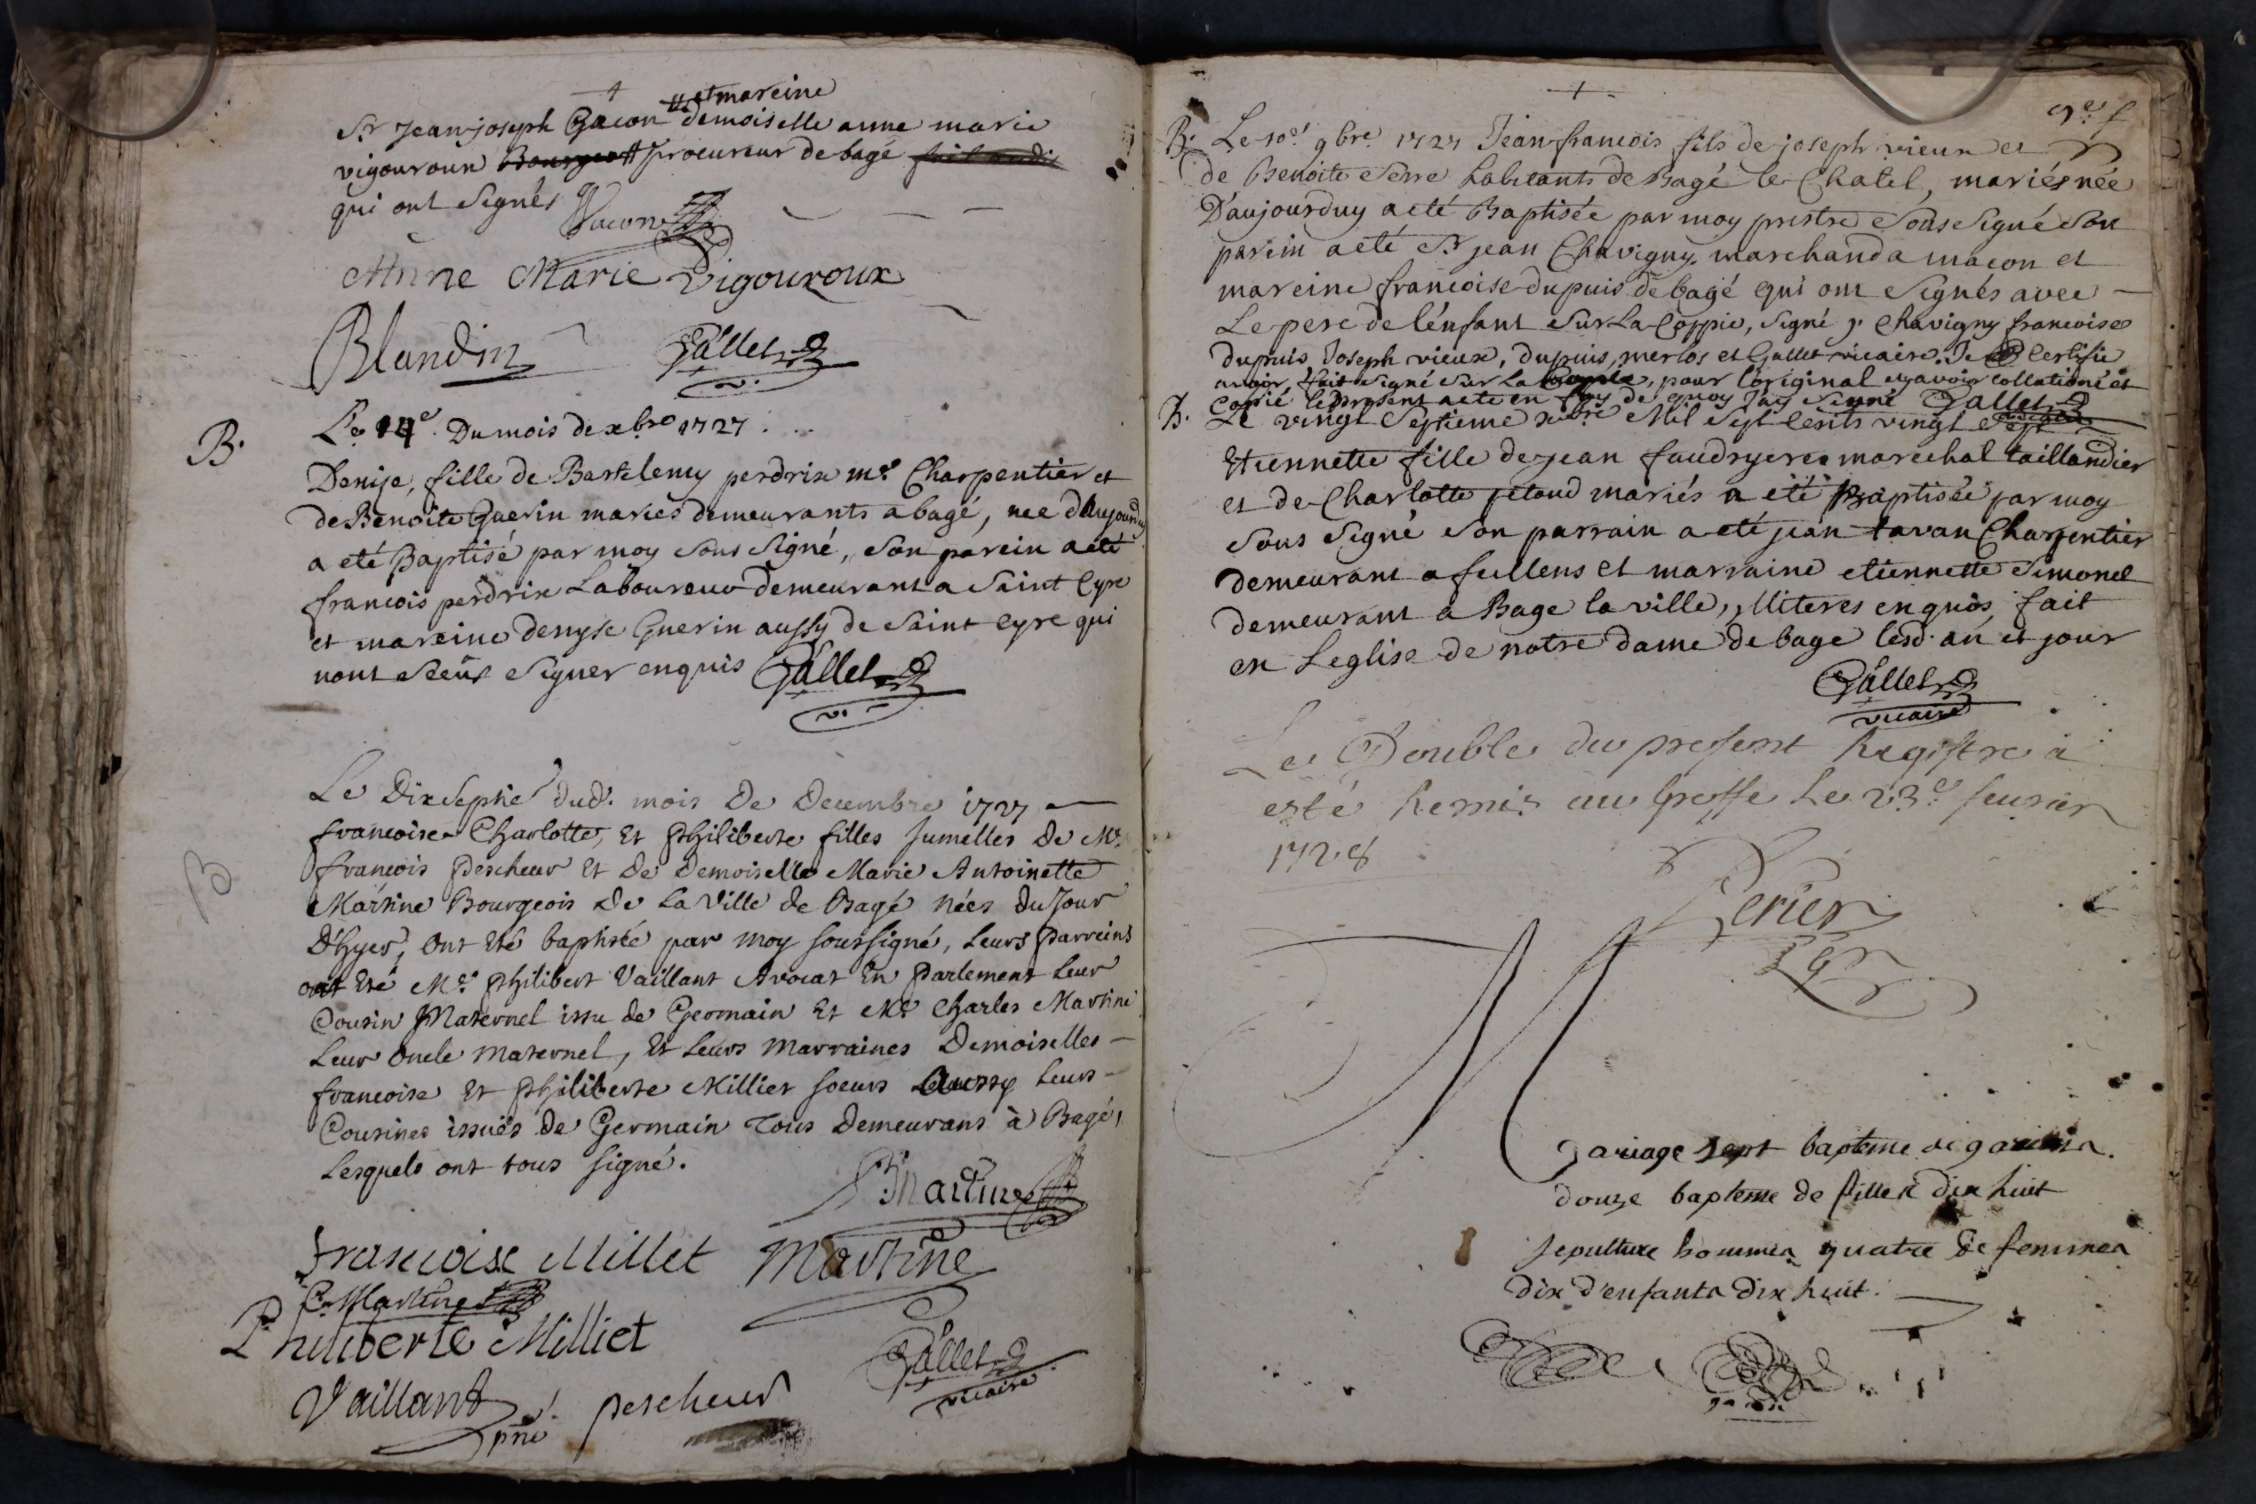 +
# et mareine
Sr Jean joseph Gacon demoiselle anne marie
vigouroun Bourgeo # procureur de bagé fait audit
qui ont Signés Gacon
Anne Marie Vigouroux
Blandin Gallet
v.
B.
Le 14e. Du mois de xbre 1727.
Denise, fille de Bartelemy perdrix me. Charpentier et
de Benoite Guerin mariés demeurants a bagé, nee d'Aujourduy
a eté Baptisé par moy Sous Signé, Son parein a eté
francois perdrix Laboureur demeurant a Saint Cyre
et mareine denyse Guerin aussy de Saint cyre qui
nont Sceus Signer enquis Gallet
v.
B
Le Dixseptie dud. mois De Decembre 1727
francoise Charlotte, Et Philiberte filles Jumelles De Mr.
francois Pescheur Et De Demoiselle Marie Antoinette
Martine Bourgeois De La Ville de Bagé Nées du Jour
D'hyer, Ont Eté baptisté par Moy Soussigné, Leurs Parreins
ont Eté Me. Philibert Vaillant Avocat En Parlement Leur
Cousin Maternel issu de Germain Et Mr. Charles Martine
Leur Oncle Maternel, Et Leurs Marraines Demoiselles
francoise Et Philiberte Millier Soeurs Aussy Leurs
Cousines issuës De Germain Tous Demeurans à Bagé,
Lesquels ont tous signé.
Martine
francoise Millet Martine
C. Martine
Philiberte Milliet
Vaillant pescheur Gallet
pné vicaire
+
9e. f
B. Le 10e. 9bre. 1727 Jean francois fils de joseph vieux et
de Benoite Serre habitants de Bagé le Chatel, mariés née
D'aujourduy a eté Baptisée par moy prestre Sous Signé Son
parein a eté Sr jean Chavigny marchand a macon et
mareine francoise dupuis de bagé qui ont Signés avec
Le pere de l'enfant Sur La Coppie, Signé j. Chavigny francoise
dupuis Joseph vieux, dupuis, merlos et Gallet vicaire. Je Certifie
avoir fait Signé Sur La Copie, pour l'original et avoir collationé et
Copié le present acte en foy de quoy J'ay Signé Gallet
B. Le vingt Septieme xbre Mil Sept Cents vingt Sept vicaire
Etiennette fille de jean faudryere marechal taillandier
et de Charlotte petoud mariés a eté Baptisée par moy
Sous Signé Son parrain a eté jean tavan Charpentier
demeurant a feillens et marraine etiennette Simonel
demeurant a Bage la ville, Illiteres enquis, fait
en Leglise de notre dame de bage lesd. an et jour
Gallet
vicaire
Le Double du present Registre à
esté Remis au Greffe Le 23e feurier
1728
Perier
Mariage sept bapteme de garcons
douze bapteme de filles dix huit
sepulture hommes quatre de femmes
dix d'enfants dix huit.